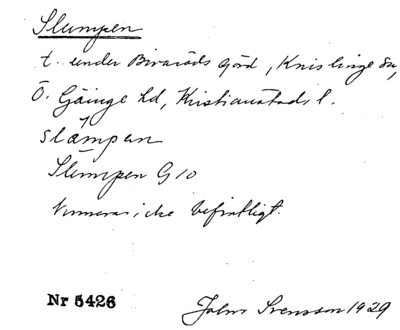 Slumpen
t. under Bivaröds gård, Knislinge sn,
Ö. Gäinge hd, Kristianstads l.
slåmpen
Slumpen G 10
Numera icke befintligt.
Nr 5426
John Svensson 1929